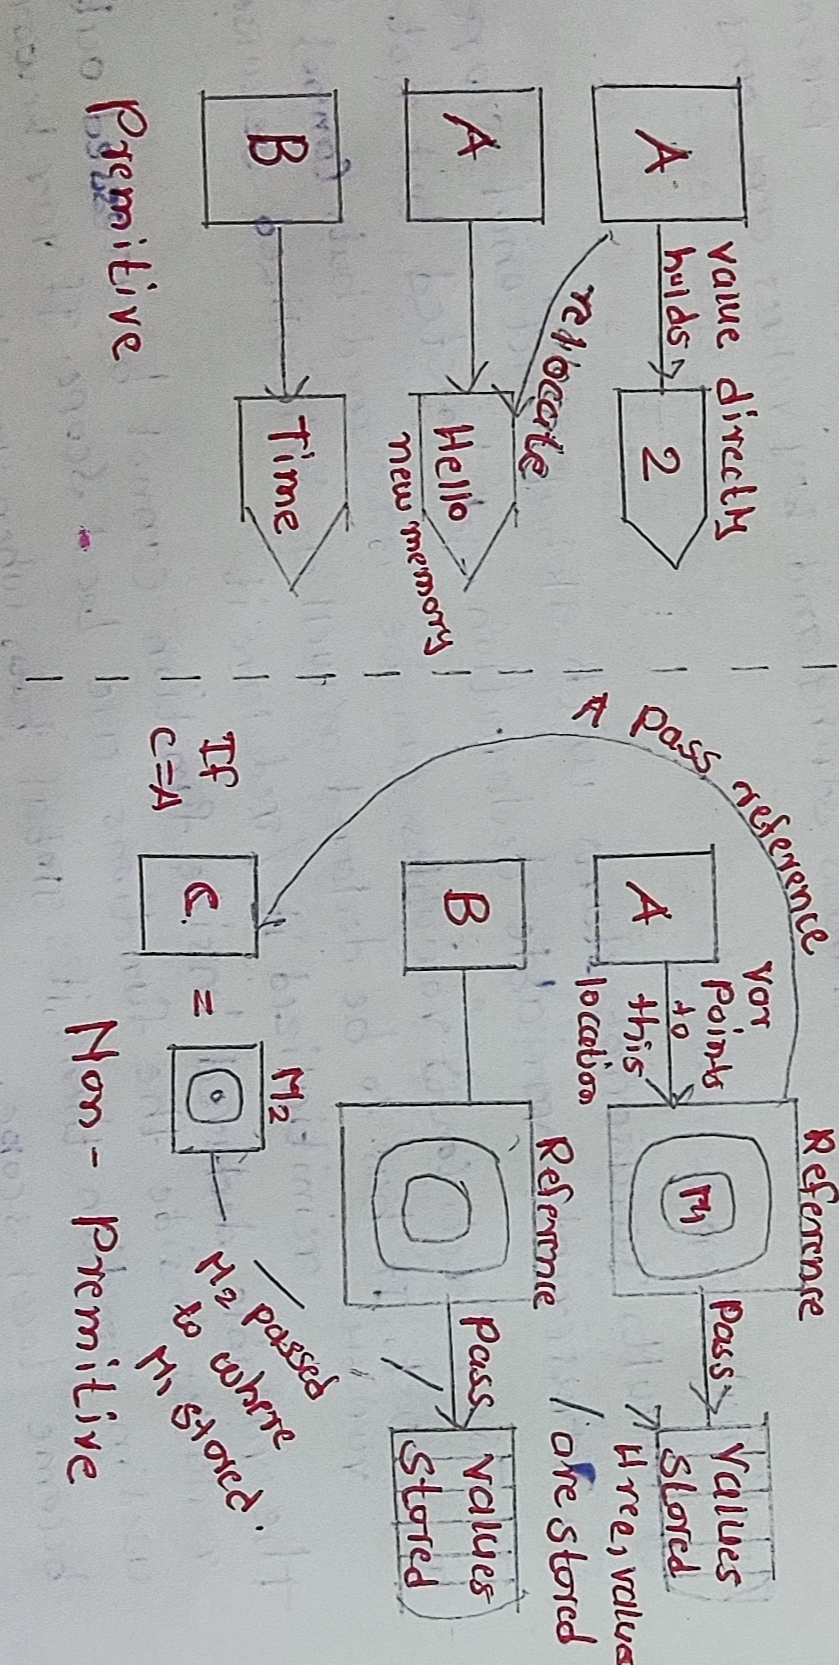 A
value directly
holds
2
rellocate
A
Hello
new memory
B
Time
Premitive
A pass reference
A
var
points
to
this
location
Reference
M1
pass
values
stored
Hree, value
are stored
B
Reference
pass
values
stored
If
C=A
C
=
M2
M2 passed
to where
M1 stored.
Non-Premitive